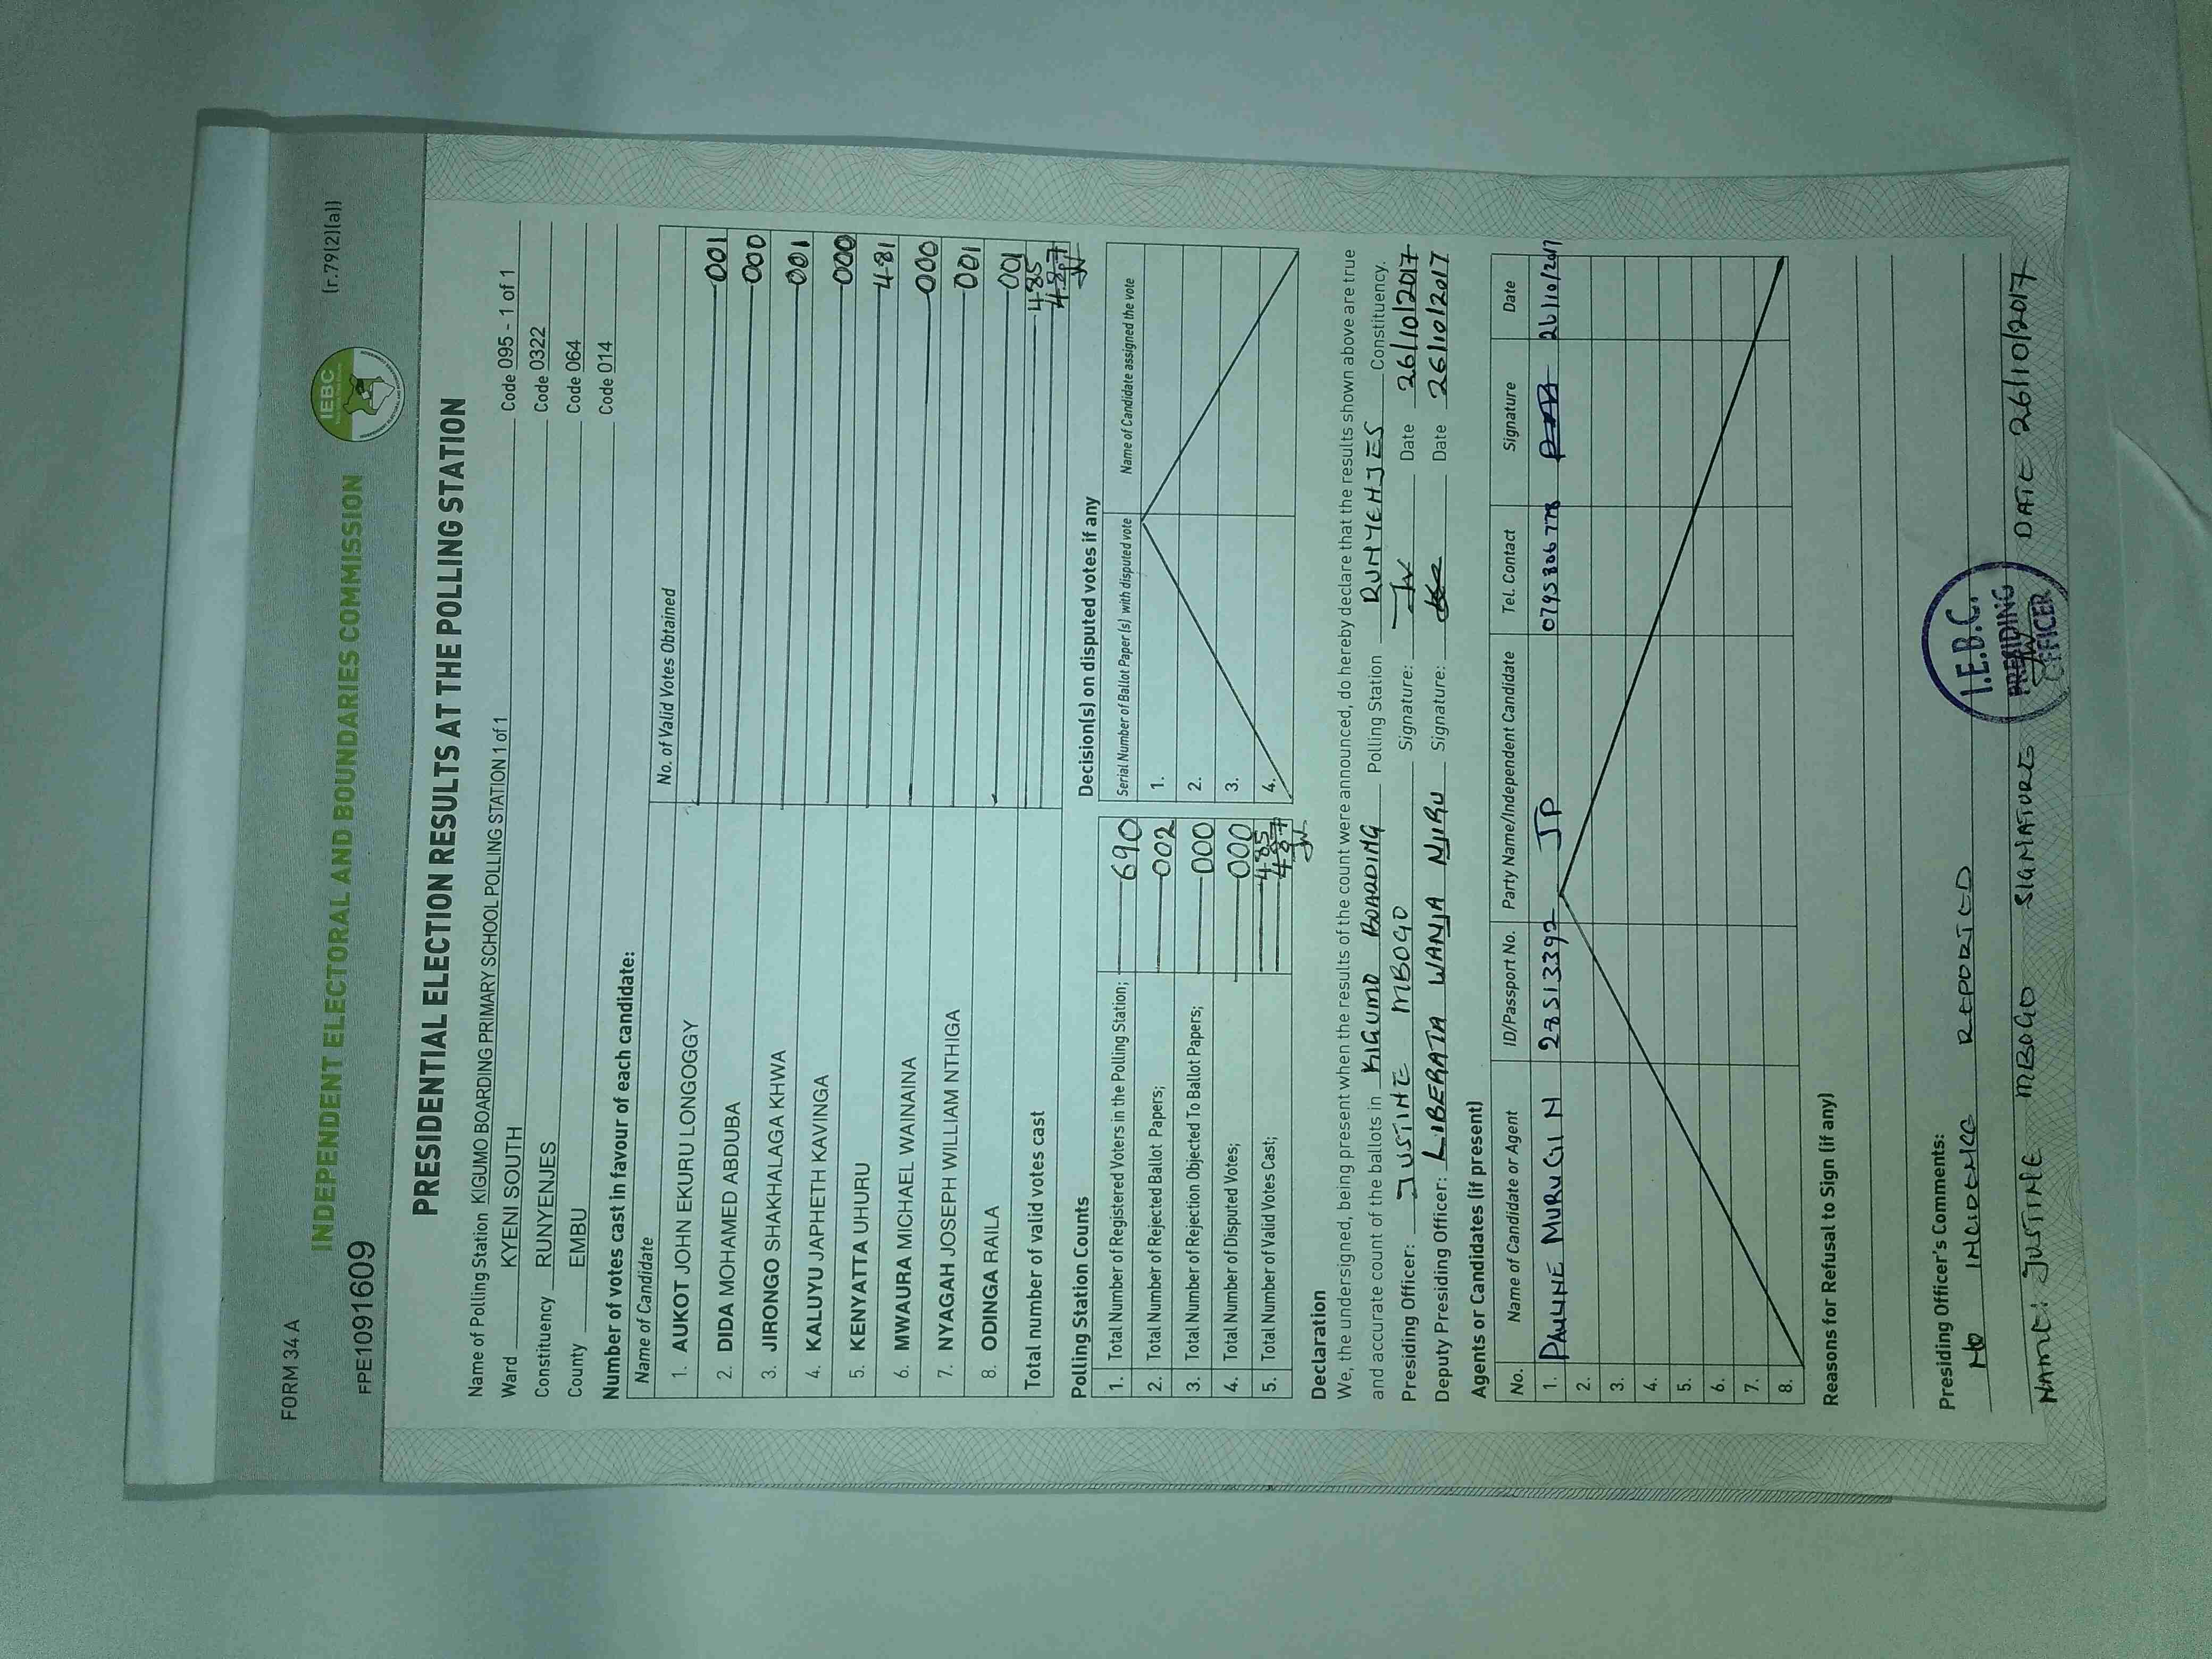 FORM 34 A
(r.79(2)(a))
INDEPENDENT ELECTORAL AND BOUNDARIES COMMISSION
IEBC
FPE1091609
PRESIDENTIAL ELECTION RESULTS AT THE POLLING STATION
Name of Polling Station KIGUMO BOARDING PRIMARY SCHOOL POLLING STATION 1 of 1 Code 095 - 1 of 1
Ward KYENI SOUTH Code 0322
Constituency RUNYENJES Code 064
County EMBU Code 014
Number of votes cast in favour of each candidate:
Name of Candidate No. of Valid Votes Obtained
1. AUKOT JOHN EKURU LONGOGGY 001
2. DIDA MOHAMED ABDUBA 000
3. JIRONGO SHAKHALAGA KHWA 001
4. KALUYU JAPHETH KAVINGA 000
5. KENYATTA UHURU 481
6. MWAURA MICHAEL WAINAINA 000
7. NYAGAH JOSEPH WILLIAM NTHIGA 001
8. ODINGA RAILA 001
Total number of valid votes cast 485
487
Polling Station Counts
1. Total Number of Registered Voters in the Polling Station; 690
2. Total Number of Rejected Ballot Papers; 002
3. Total Number of Rejection Objected To Ballot Papers; 000
4. Total Number of Disputed Votes; 000
5. Total Number of Valid Votes Cast; 485
487
Decision(s) on disputed votes if any
Serial Number of Ballot Paper (s) with disputed vote Name of Candidate assigned the vote
1.
2.
3.
4.
Declaration
We, the undersigned, being present when the results of the count were announced, do hereby declare that the results shown above are true
and accurate count of the ballots in KIGUMO BOARDING Polling Station RUNYENJES Constituency.
Presiding Officer: JUSTINE MBOGO Signature: JN Date 26/10/2017
Deputy Presiding Officer: LIBERATA WANJA NJIRU Signature: Date 26/10/2017
Agents or Candidates (if present)
No. Name of Candidate or Agent ID/Passport No. Party Name/Independent Candidate Tel. Contact Signature Date
1. PAULINE MURUGI N 23513392 JP 0795806778 26/10/2017
2.
3.
4.
5.
6.
7.
8.
Reasons for Refusal to Sign (if any)
Presiding Officer's Comments:
NO INCIDENCE REPORTED
I.E.B.C.
PRESIDING
OFFICER
NAME: JUSTINE MBOGO SIGNATURE DATE 26/10/2017